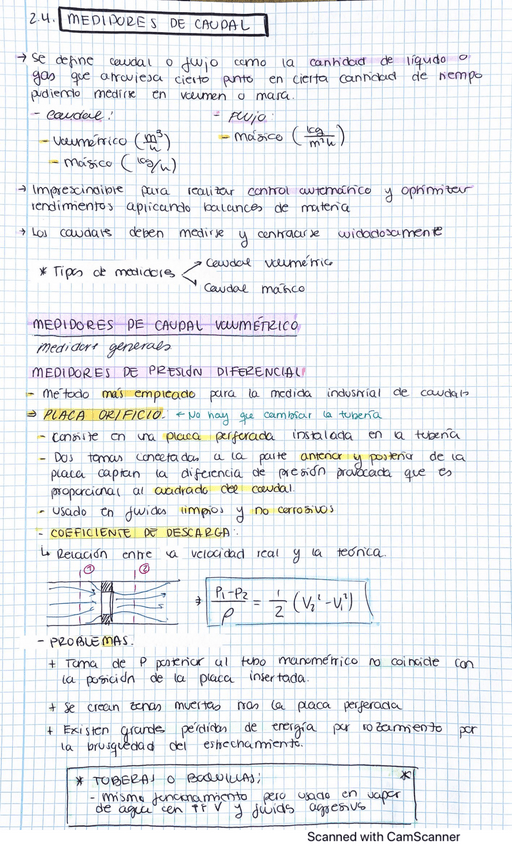 2.4. MEDIDORES DE CAUDAL
→ Se define caudal o flujo como la cantidad de líquido o
gas que atraviesa cierto punto en cierta cantidad de tiempo
pudiendo medirse en volumen o masa.
- Caudal: - Flujo:
- Volumétrico (m³/h) - másico (kg/m²h)
- másico (kg/h)
→ Imprescindible para realizar control automático y optimizar
rendimientos aplicando balances de materia
→ Los caudales deben medirse y controlarse cuidadosamente
* Tipos de medidores Caudal volumétrico
Caudal másico
MEDIDORES DE CAUDAL VOLUMÉTRICO
Medidores generales
MEDIDORES DE PRESIÓN DIFERENCIAL
- Método más empleado para la medida industrial de caudales
⇒ PLACA ORIFICIO. ← No hay que cambiar la tubería
- Consiste en una placa perforada instalada en la tubería
- Dos tomas conectadas a la parte anterior y posterior de la
placa captan la diferencia de presión provocada que es
proporcional al cuadrado del caudal.
- Usado en fluidos limpios y no corrosivos
- COEFICIENTE DE DESCARGA.
↳ Relación entre la velocidad real y la teórica.
① ② → (P₁-P₂)/ρ = 1/2 (V₂² - V₁²)
- PROBLEMAS.
+ Toma de P posterior al tubo manométrico no coincide con
la posición de la placa insertada.
+ Se crean zonas muertas tras la placa perforada
+ Existen grandes pérdidas de energía por rozamiento por
la brusquedad del estrechamiento.
* TOBERAS O BOQUILLAS; *
- mismo funcionamiento pero usado en vapor
de agua con ↑↑ V y fluidos agresivos
Scanned with CamScanner